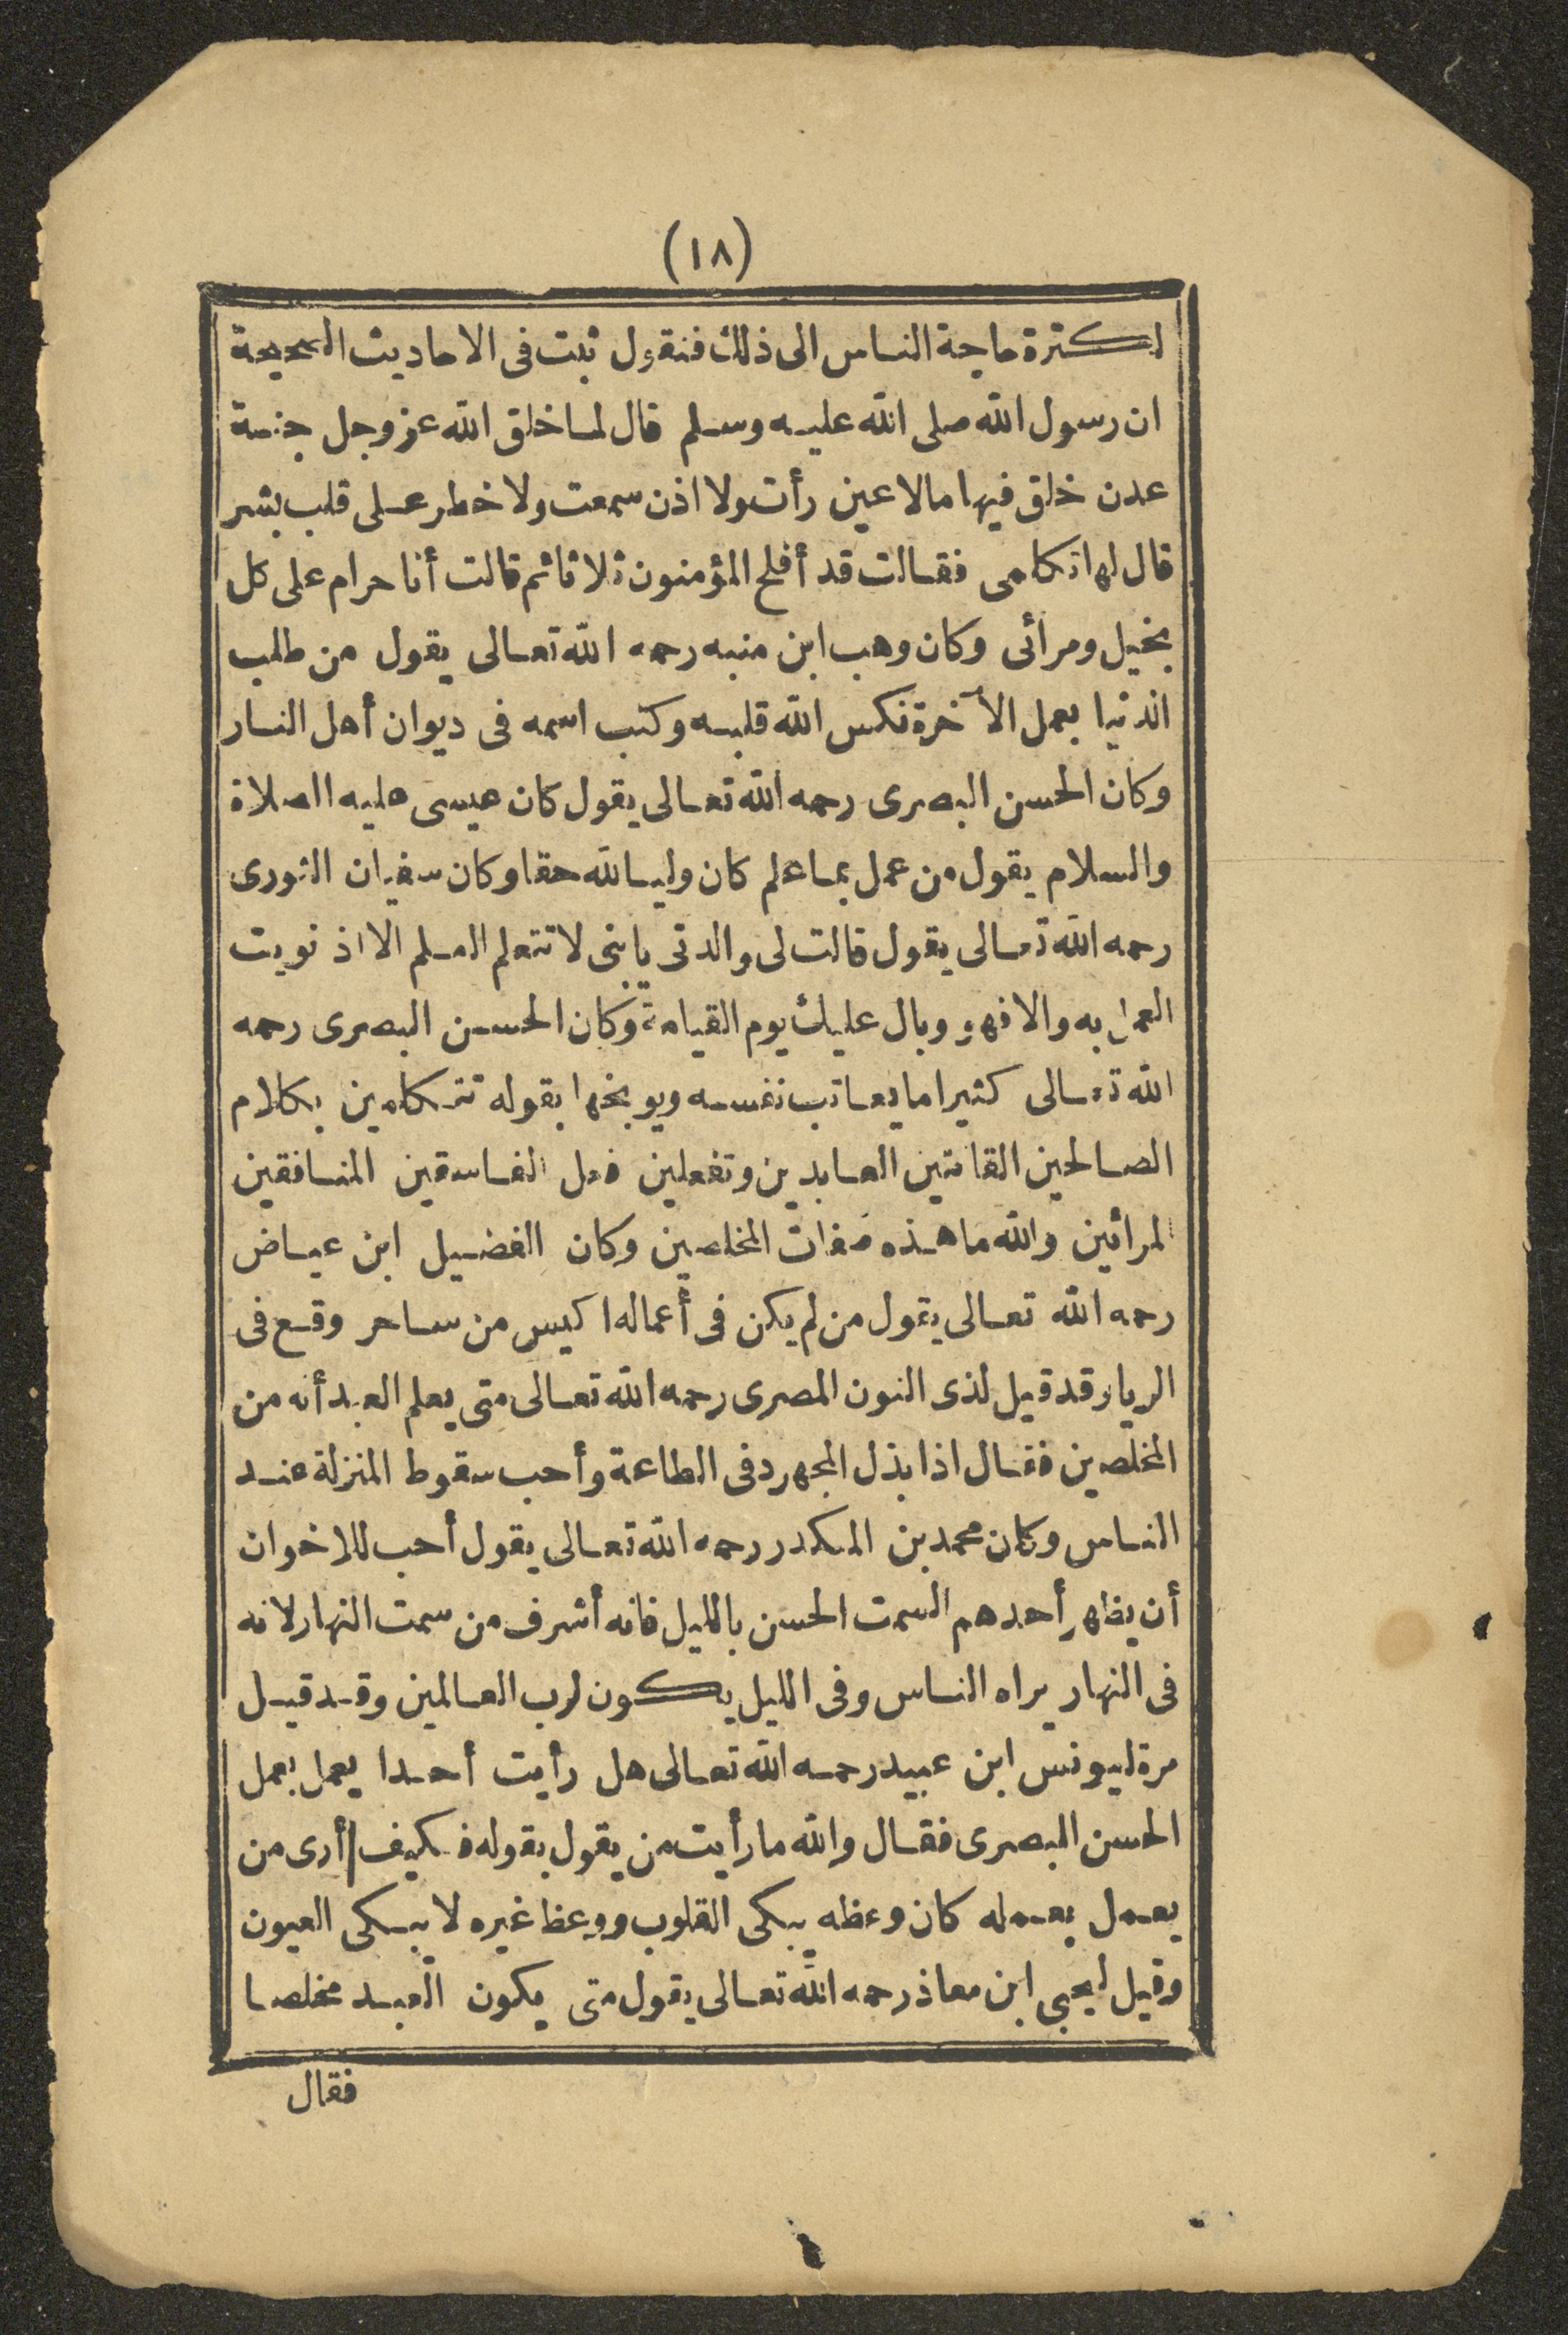 (١٨)
لكثرة حاجة الناس الى ذلك فنقول ثبت فى الاحاديث الصحيحة
ان رسول الله صلى الله عليه وسلم قال لما خلق الله عز وجل جنة
عدن خلق فيها مالا عين رأت ولا اذن سمعت ولا خطر على قلب بشر
قال لها تكلمى فقالت قد أفلح المؤمنون ثلاثا ثم قالت أنا حرام على كل
بخيل ومرائى وكان وهب ابن منبه رحمه الله تعالى يقول من طلب
الدنيا بعمل الآخرة نكس الله قلبه وكتب اسمه فى ديوان أهل النار
وكان الحسن البصرى رحمه الله تعالى يقول كان عيسى عليه الصلاة
والسلام يقول من عمل بما علم كان وليا لله حقا وكان سفيان الثورى
رحمه الله تعالى يقول قالت لى والدتى يا بنى لا تتعلم العلم الا اذ نويت
العمل به والا فهو وبال عليك يوم القيامة وكان الحسن البصرى رحمه
الله تعالى كثيرا ما يعاتب نفسه ويوبخها بقوله تتكلمين بكلام
الصالحين القانتين العابدين وتفعلين فعل الفاسقين المنافقين
المرائين والله ما هذه صفات المخلصين وكان الفضيل ابن عياض
رحمه الله تعالى يقول من لم يكن فى أعماله اكيس من ساحر وقع فى
الريا وقد قيل لذى النون المصرى رحمه الله تعالى متى يعلم العبد أنه من
المخلصين فقال اذا بذل المجهود فى الطاعة وأحب سقوط المنزلة عند
الناس وكان محمد بن المنكدر رحمه الله تعالى يقول أحب للاخوان
أن يظهر أحدهم السمت الحسن بالليل فانه أشرف من سمت النهار لانه
فى النهار يراه الناس وفى الليل يكون لرب العالمين وقد قيل
مرة ليونس ابن عبيد رحمه الله تعالى هل رأيت أحدا يعمل بعمل
الحسن البصرى فقال والله ما رأيت من يقول بقوله فكيف أرى من
يعمل بعمله كان وعظه يبكى القلوب ووعظ غيره لا يبكى العيون
وقيل ليحيى ابن معاذ رحمه الله تعالى يقول متى يكون العبد مخلصا
فقال